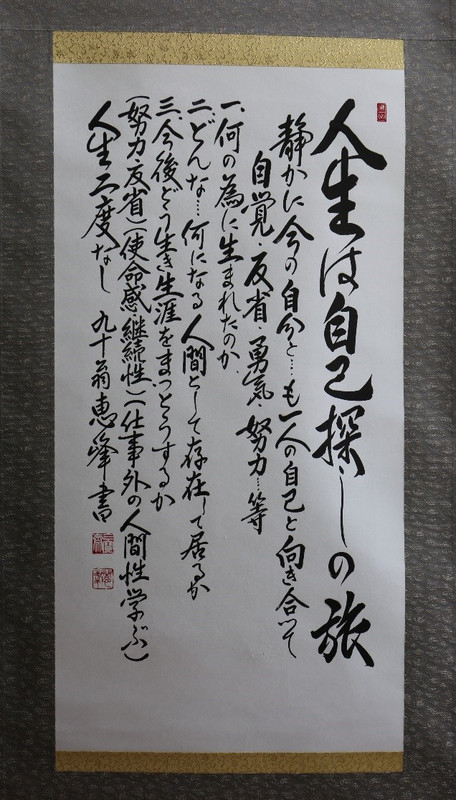 人生は自己探しの旅
静かに今の自分と…も一人の自己と向き合って
自覚・反省・勇気・努力…等
一、何の為に生まれたのか、
二、どんな…何になる人間として存在して居るか
三、今後どう生き生涯をまっとうするか
(努力・反省)(使命感・継続性)(仕事外の人間性学ぶ)
人生二度なし 九十翁 恵峰書